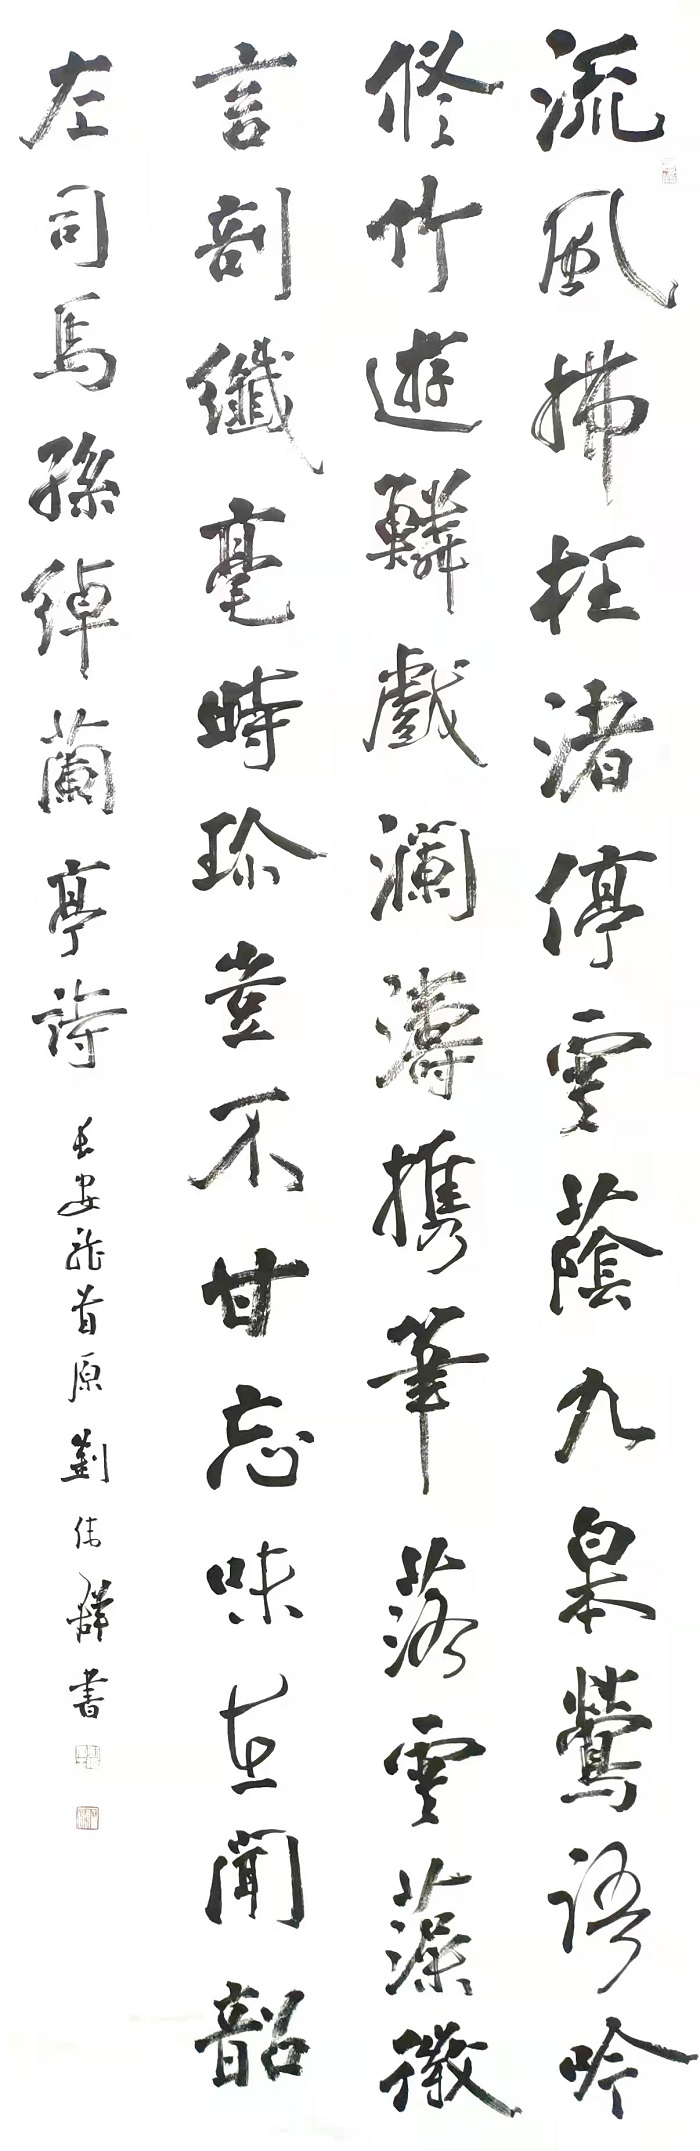 流風拂枉渚停雲蔭九皋鶯語吟
修竹遊鱗戲瀾濤携筆落雲藻微
言剖纖毫時珍豈不甘忘味在聞韶
左司馬孫綽蘭亭詩 長安龍首原劉偉書